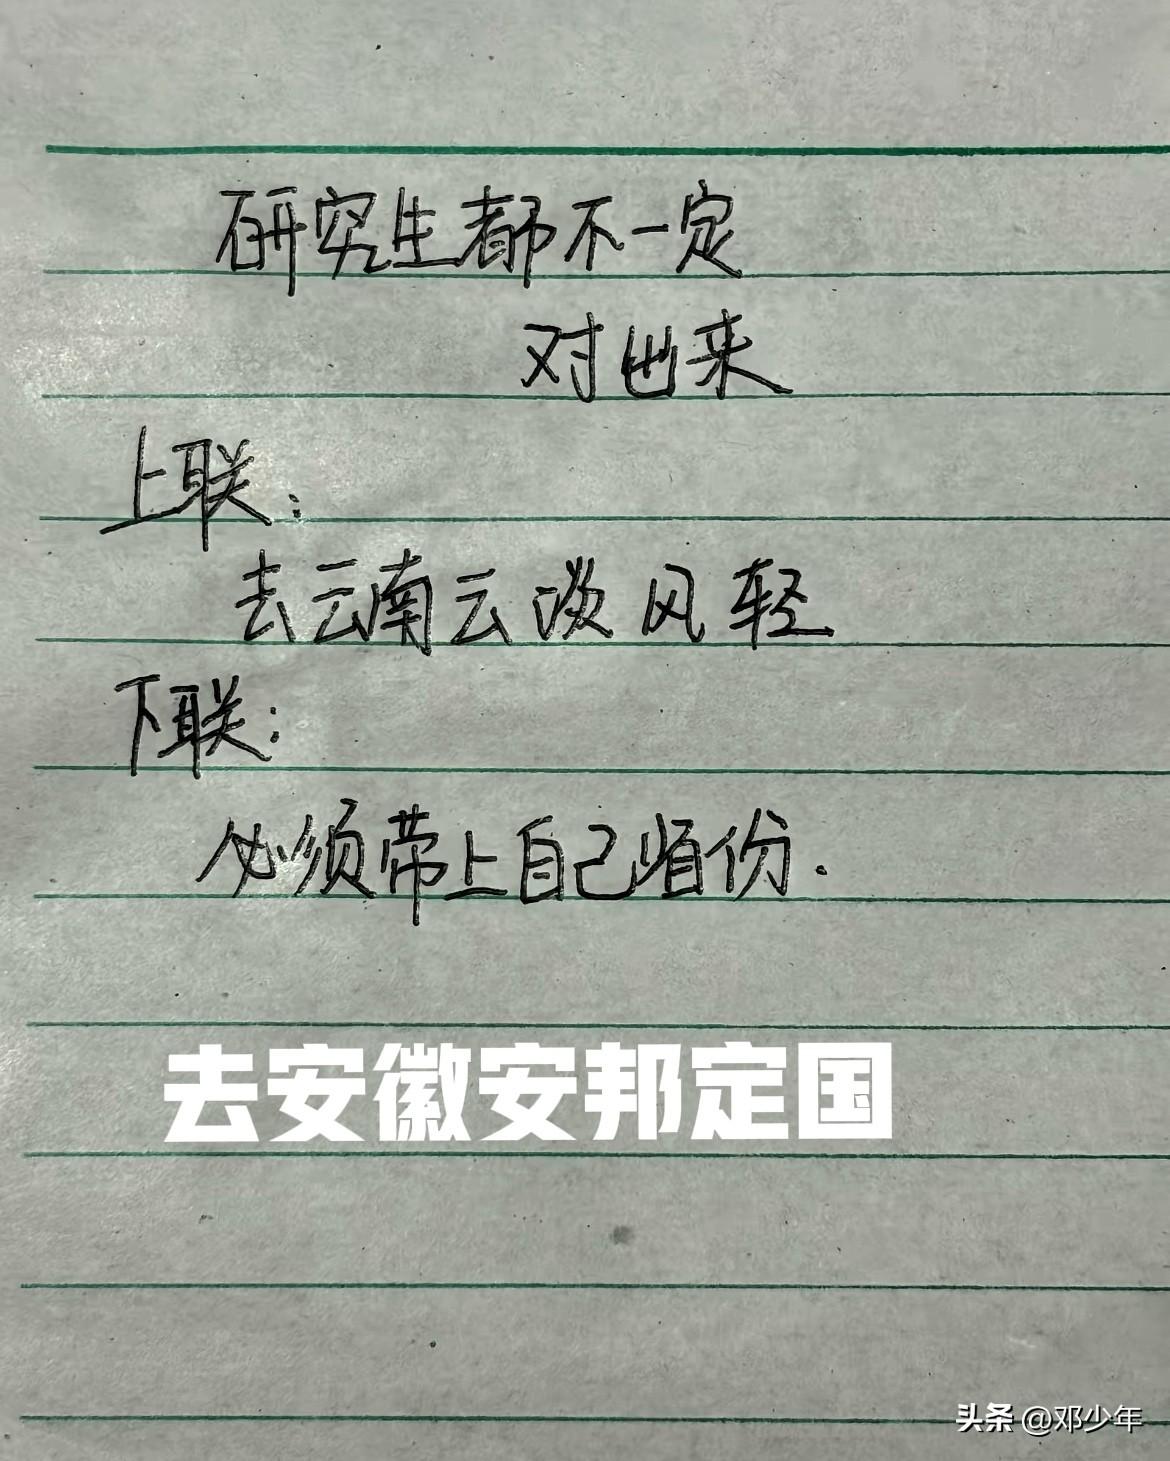 研究生都不一定
对出来
上联：
去云南云淡风轻
下联：
必须带上自己省份.
去安徽安邦定国
头条 @邓少年